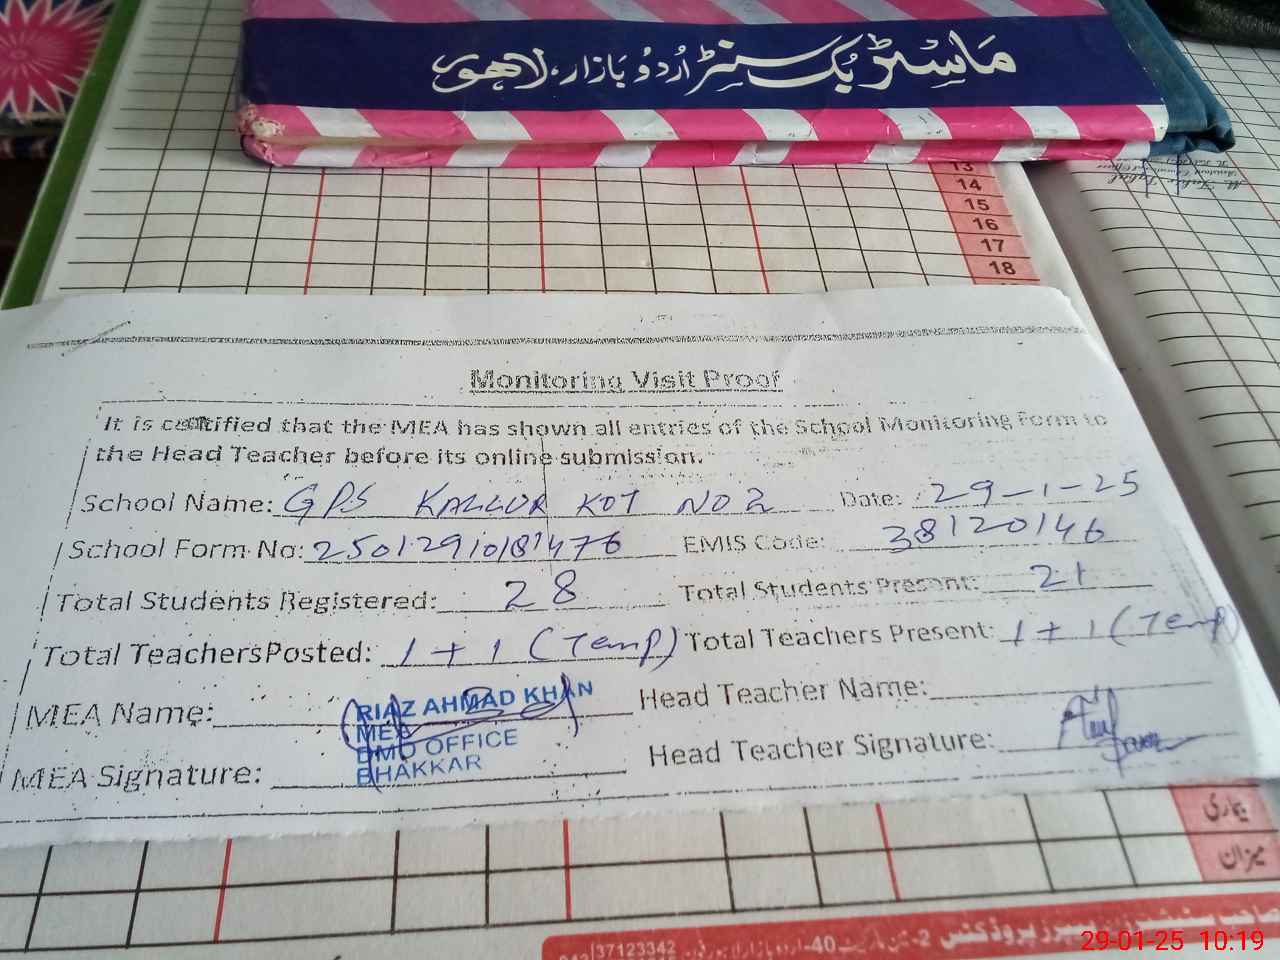 ماسٹر بک سنٹر اردو بازار، لاہور
13
14
15
16
17
18
Monitoring Visit Proof
It is certified that the MEA has shown all entries of the School Monitoring Form to
the Head Teacher before its online submission.
School Name: GPS KALLUR KOT NO 2 Date: 29-1-25
School Form No: EMIS Code: 38120146
Total Students Registered: 28 Total Students Present: 21
Total Teachers Posted: 1 + 1 (Temp) Total Teachers Present: 1 + 1 (Temp)
MEA Name: RIAZ AHMAD KHAN Head Teacher Name:
MEA
DMO OFFICE
BHAKKAR
MEA Signature: Head Teacher Signature:
بیماری
میزان
37123342
29-01-25 10:19